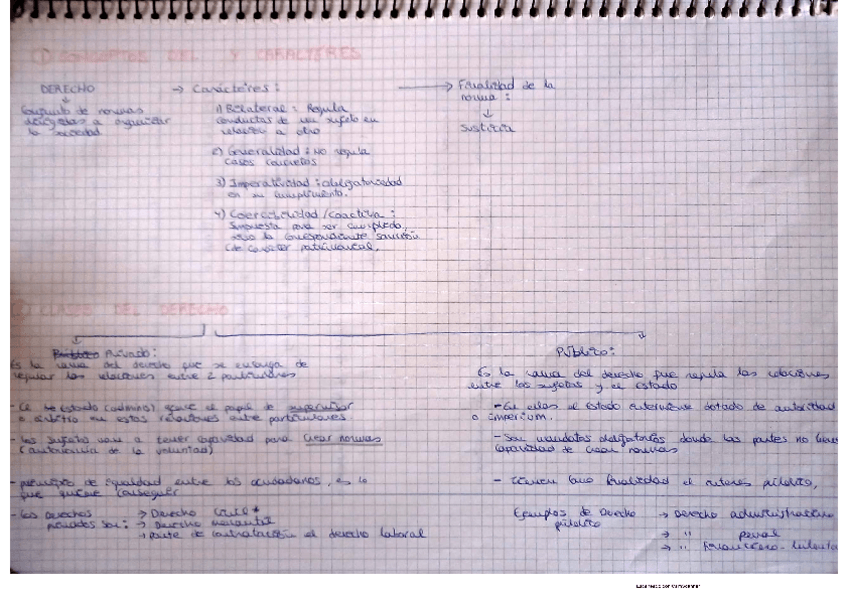 1) CONCEPTOS DEL Y CARACTERES
DERECHO
→ Carácteres:
→ Finalidad de la
norma:
Justicia
Conjunto de normas
dirigidas a organizar
la sociedad
1) Bilateral: Regula
conductas de un sujeto en
relación a otro
2) Generalidad: No regula
casos concretos
3) Imperatividad: obligatoriedad
en su cumplimiento.
4) Coercibilidad / Coactiva:
Impuesta para ser cumplido,
bajo la correspondiente sanción
de carácter patrimonial,
2) CLASES DEL DERECHO
Privado:
Es la rama del derecho que se encarga de
regular las relaciones entre 2 particulares
- El estado (admins) ejerce el papel de supervisor
o árbitro en estas relaciones entre particulares
- los sujetos van a tener capacidad para crear normas
(autonomía de la voluntad)
- principio de igualdad entre los ciudadanos, es lo
que quiere conseguir
- los Derechos → Derecho Civil *
privados son: → Derecho mercantil
→ parte de contratación el derecho laboral
Público:
Es la rama del derecho que regula las relaciones
entre los sujetos y el estado
- En ellas el estado interviene dotado de autoridad
o imperium.
- Son mandatos obligatorios donde las partes no tienen
capacidad de crear normas
- tienen como finalidad el interes público,
Ejemplos de Derecho → Derecho administrativo
público
→ " penal
→ " financiero-